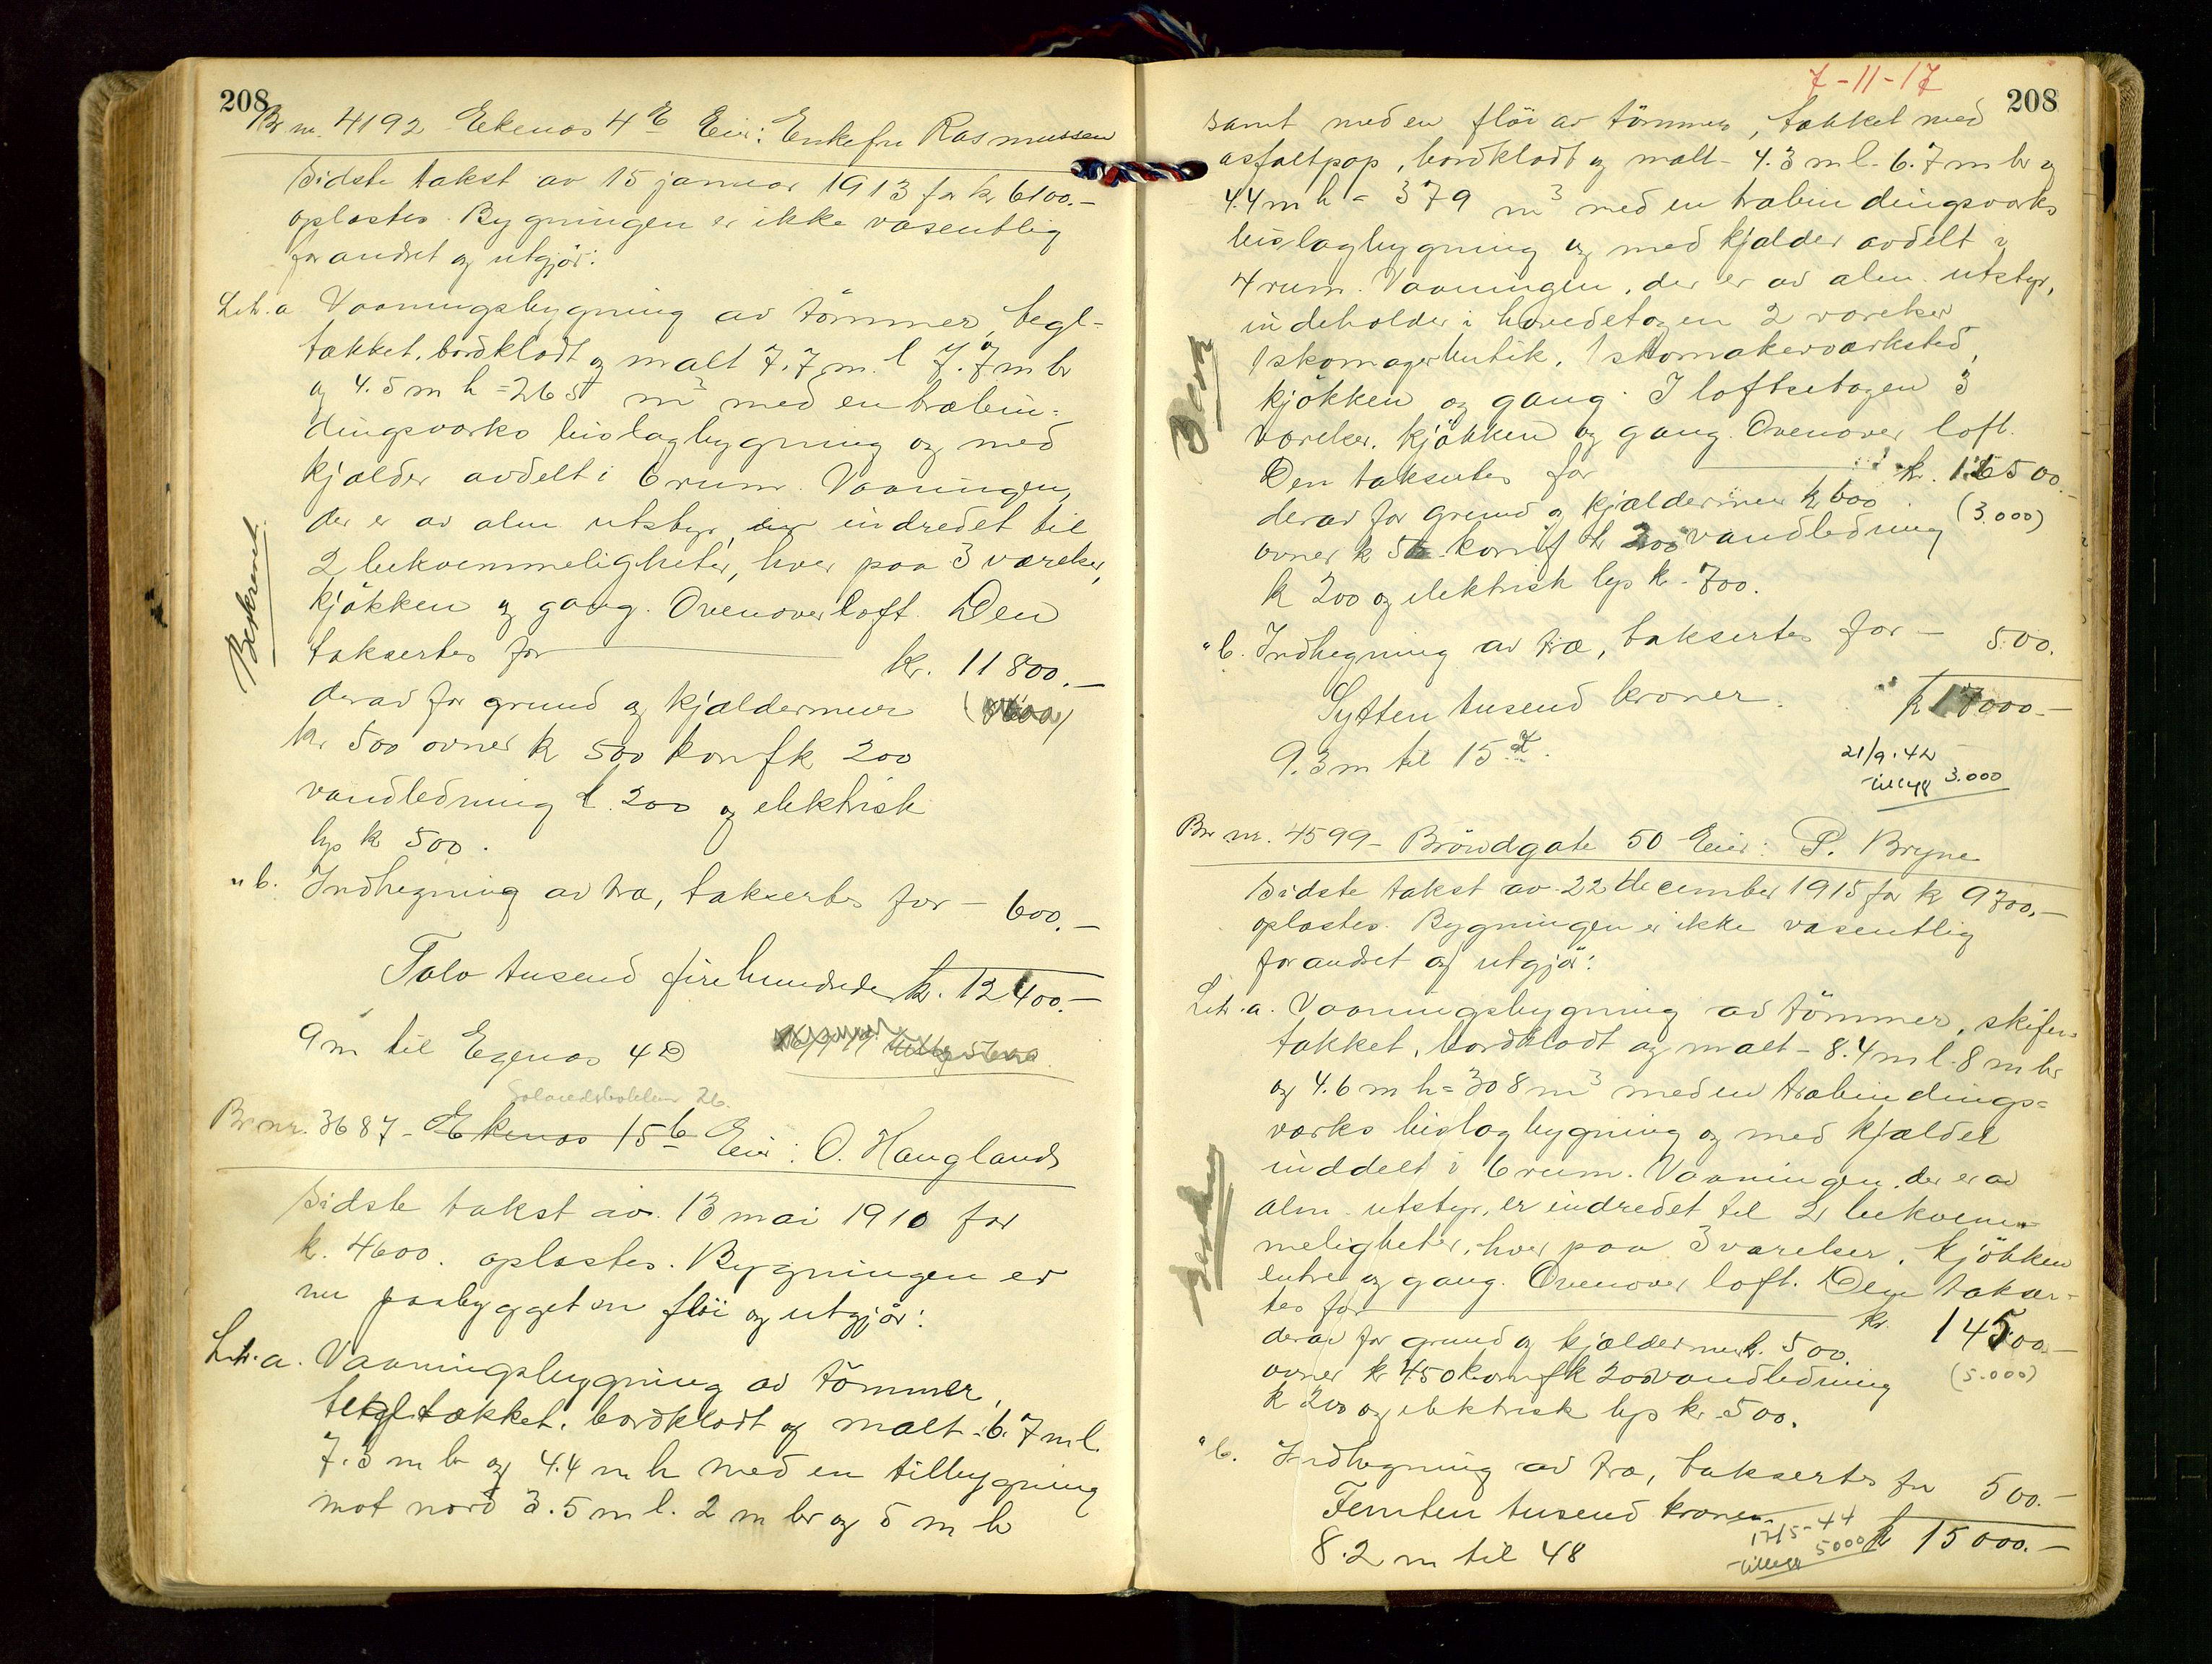 208
Br nr. 4192 Ekenæs 4 E Eier: Enkefru Rasmussen
Sidste takst av 15 januar 1913 for kr 6100.-
oplæstes. Bygningen er ikke væsentlig
forandret og utgjør:
Litr. a Vaaningsbygning av tømmer, tegl-
tækket, bordklædt og malt 7.7 m. l 7.7 m br
og 4.5 m h = 265 m³ med en træbin-
dingsværks bislagbygning og med
kjælder avdelt i 6 rum. Vaaningen,
der er av alm utstyr, er indredet til
2 bekvemmeligheter, hver paa 3 værelser,
kjøkken og gang. Ovenover loft. Den
taksertes for kr. 11800.-
derav for grund og kjældermur
kr 500 ovner k 500 komf k 200
vandledning k. 200 og elektrisk
lys k 500.
" b. Indhegning av træ, taksertes for - 600.-
Tolv tusend fire hundrede k. 12400.-
9 m til Egenæs 4 D
26.
Br nr. 3687 - Ekenæs 15 b Eier: O. Haugland
Sidste takst av 13 mai 1910 for
k. 4600. oplæstes. Bygningen er
nu paabygget en fløi og utgjør:
Litr. a. Vaaningsbygning av tømmer,
tegltækket, bordklædt og malt - 6.7 m l.
7.3 m br og 4.4 m h med en tilbygning
mot nord 3.5 m l. 2 m br og 5 m h
7-11-17
208
samt med en fløi av tømmer, tækket med
asfaltpap, bordklædt og malt - 4.3 m l. 6.7 m br og
4.4 m h = 379 m³ med en træbindingsværks
bislagbygning og med kjælder avdelt i
4 rum. Vaaningen, der er av alm. utstyr,
indeholder i hovedetagen 2 værelser
1 skomagerbutik, 1 skomakerværksted,
kjøkken og gang. I loftsetagen 3
værelser, kjøkken og gang. Ovenover loft.
Den taksertes for kr. 16500.-
derav for grund og kjældermur k 600 (3.000)
ovner k komf k 200 vandledning
k 200 og elektrisk lys k. 700.
" b. Indhegning av træ, taksertes for - 500.
Sytten tusend kroner. k 17000.-
9.3 m til 15
21/9.42
Tillegg 3.000
Br nr. 4599 - Brøwdgate 50 Eier: P. Bryne
Sidste takst av 22 december 1915 for k 9700.-
oplæstes. Bygningen er ikke væsentlig
forandret og utgjør:
Litr. a. Vaaningsbygning av tømmer, skifer-
tækket, bordklædt og malt - 8.4 m l. 8 m br
og 4.6 m h = 308 m³ med en træbindings-
værks bislagbygning og med kjælder
inddelt i 6 rum. Vaaningen, der er av
alm. utstyr, er indredet til 2 bekvem-
meligheter, hver paa 3 værelser, kjøkken
entre og gang. Ovenover loft. Den takser-
tes for kr. 14500.-
derav for grund og kjældermur k. 500. (5.000)
ovner k 450 komf k 200 vandledning
k 200 og elektrisk lys kr. 500.
" b. Indhegning av træ, taksertes for 500.-
Femten tusend kroner k 15000.-
8.2 m til 48
17/5-44
Tillegg 5000